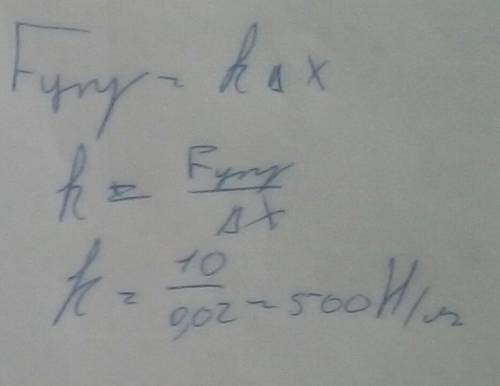 Fупр = kΔx
k = Fупр/Δx
k = 10/0,02 = 500 Н/м